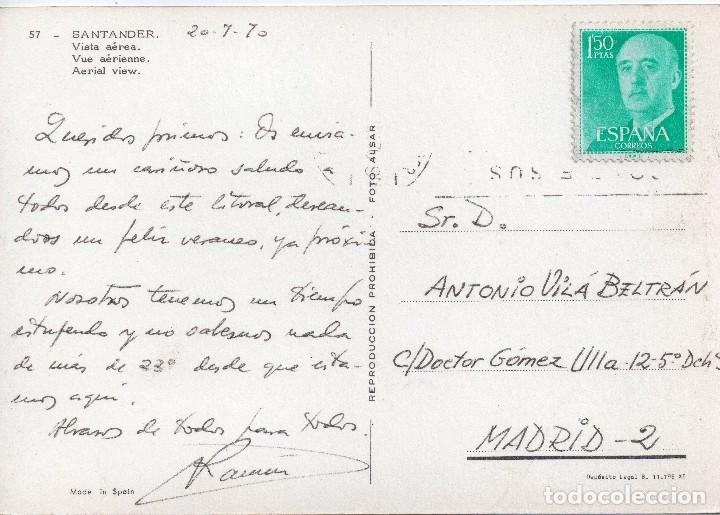 57 - SANTANDER. 20-7-70
Vista aérea.
Vue aérienne.
Aerial view.
Queridos primos: Os envia-
mos un cariñoso saludo a
todos desde este litoral, desean-
doos un feliz veraneo, ya próxi
mo.
Nosotros tenemos un tiempo
estupendo y no sabemos nada
de más de 23º desde que esta-
mos aquí.
Abrazos de todos para todos.
Ramón
Made in Spain
REPRODUCCION PROHIBIDA - FOTO ALSAR
1'50
PTAS
ESPAÑA
CORREOS
Sr. D.
ANTONIO VILÁ BELTRÁN
C/Doctor Gómez Ulla-12-5º Dchª
MADRID-2
Depósito Legal B.
todocoleccion